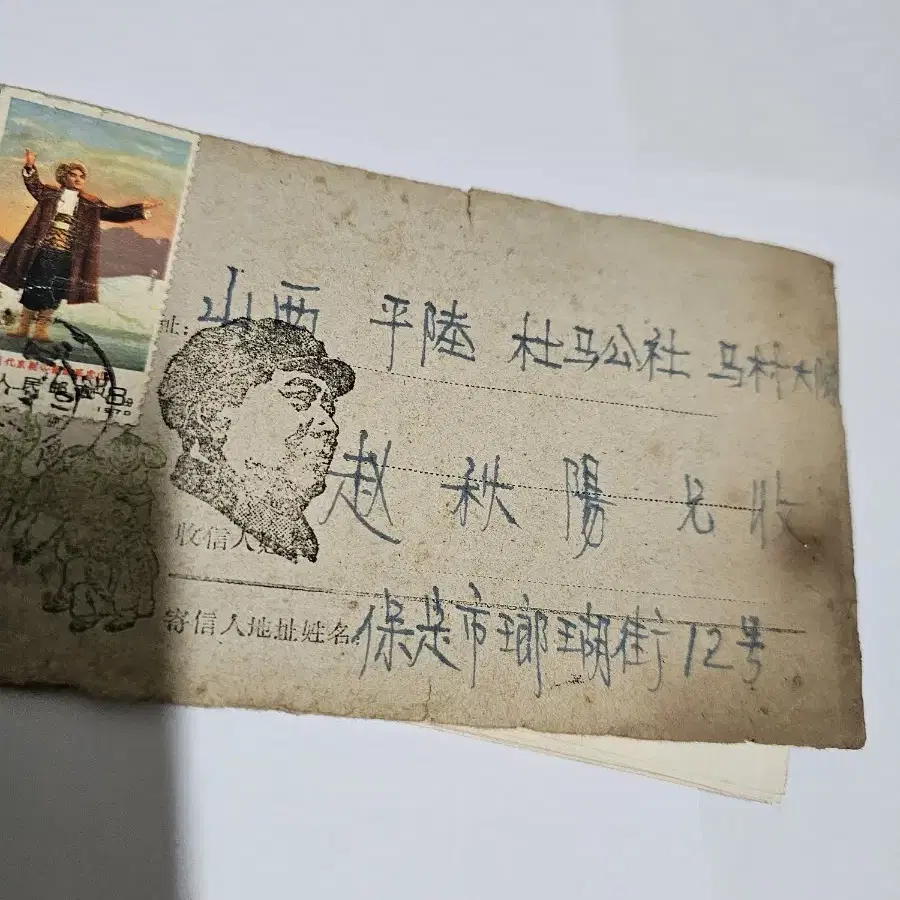 1970
址：山西 平陸 杜马公社 马村大队
赵 秋 陽 兄 收
收信人姓
寄信人地址姓名 保定市 街12号